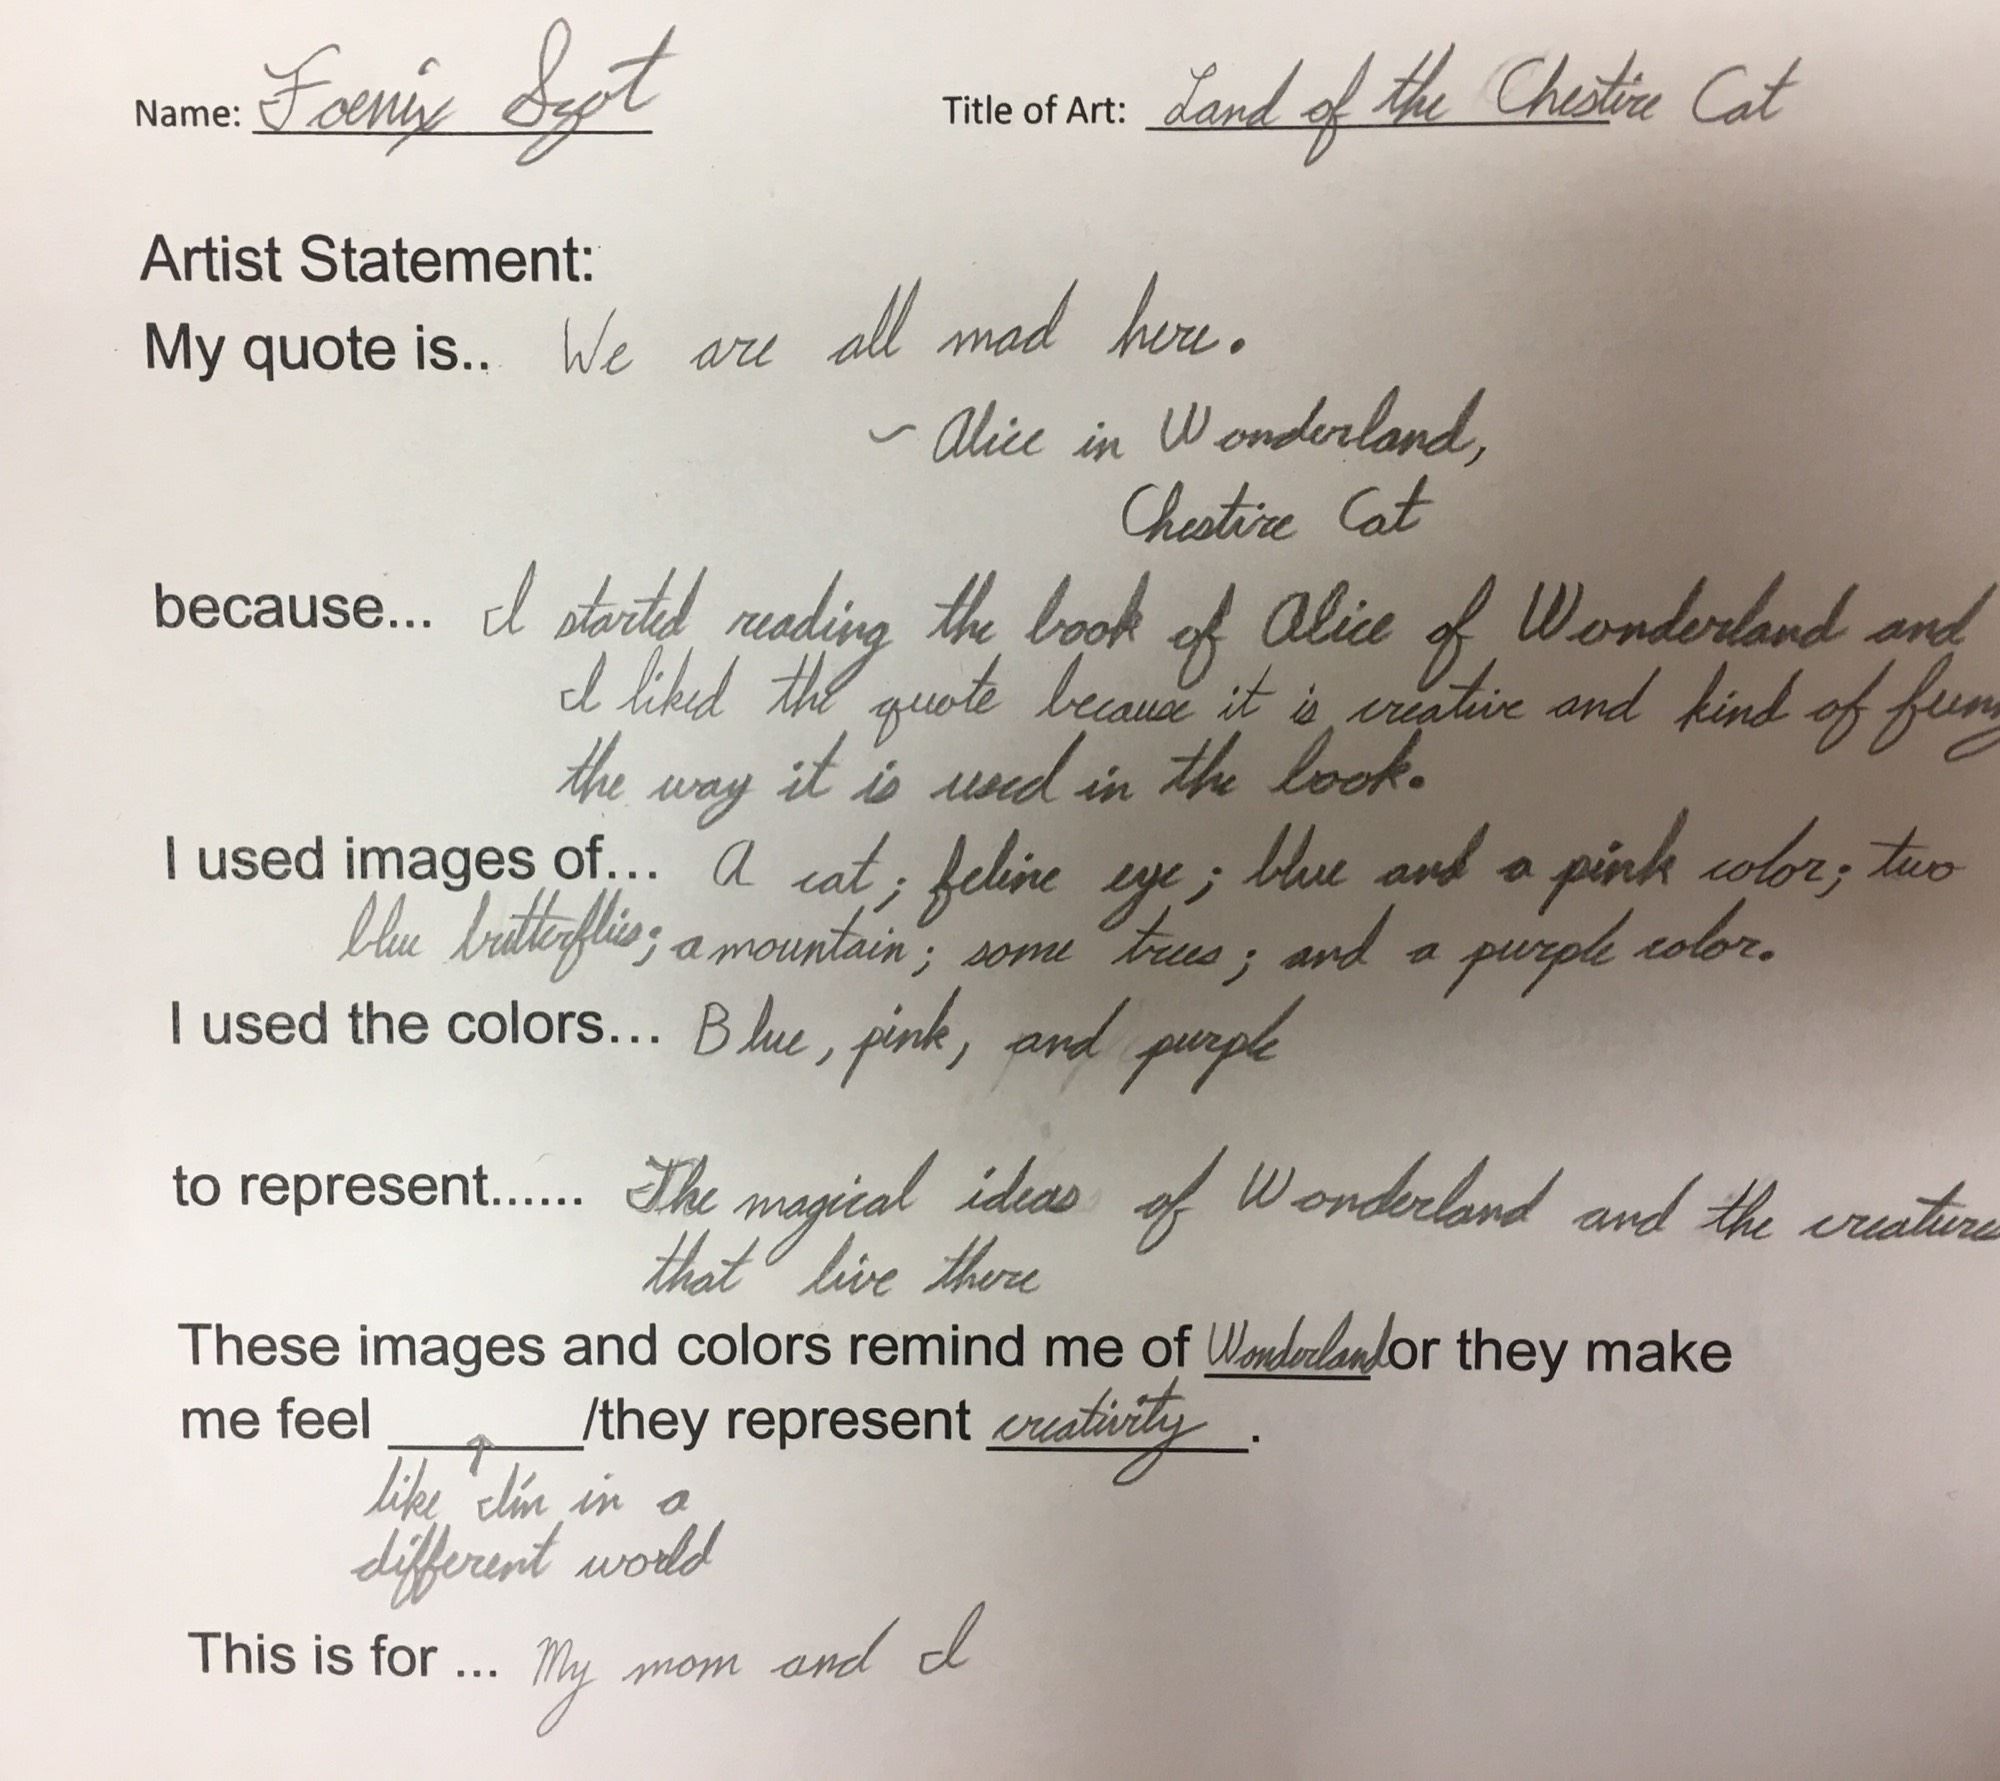 Name: Foenix Szot Title of Art: Land of the Chestire Cat
Artist Statement:
My quote is.. We are all mad here.
~ Alice in Wonderland,
Chestire Cat
because... I started reading the book of Alice of Wonderland and
I liked the quote because it is creative and kind of funny
the way it is used in the book.
I used images of... A cat; feline eye; blue and a pink color; two
blue butterflies; a mountain; some trees; and a purple color.
I used the colors... Blue, pink, and purple
to represent...... The magical ideas of Wonderland and the creatures
that live there
These images and colors remind me of Wonderland or they make
me feel ______/they represent creativity.
like I'm in a
different world
This is for ... My mom and I